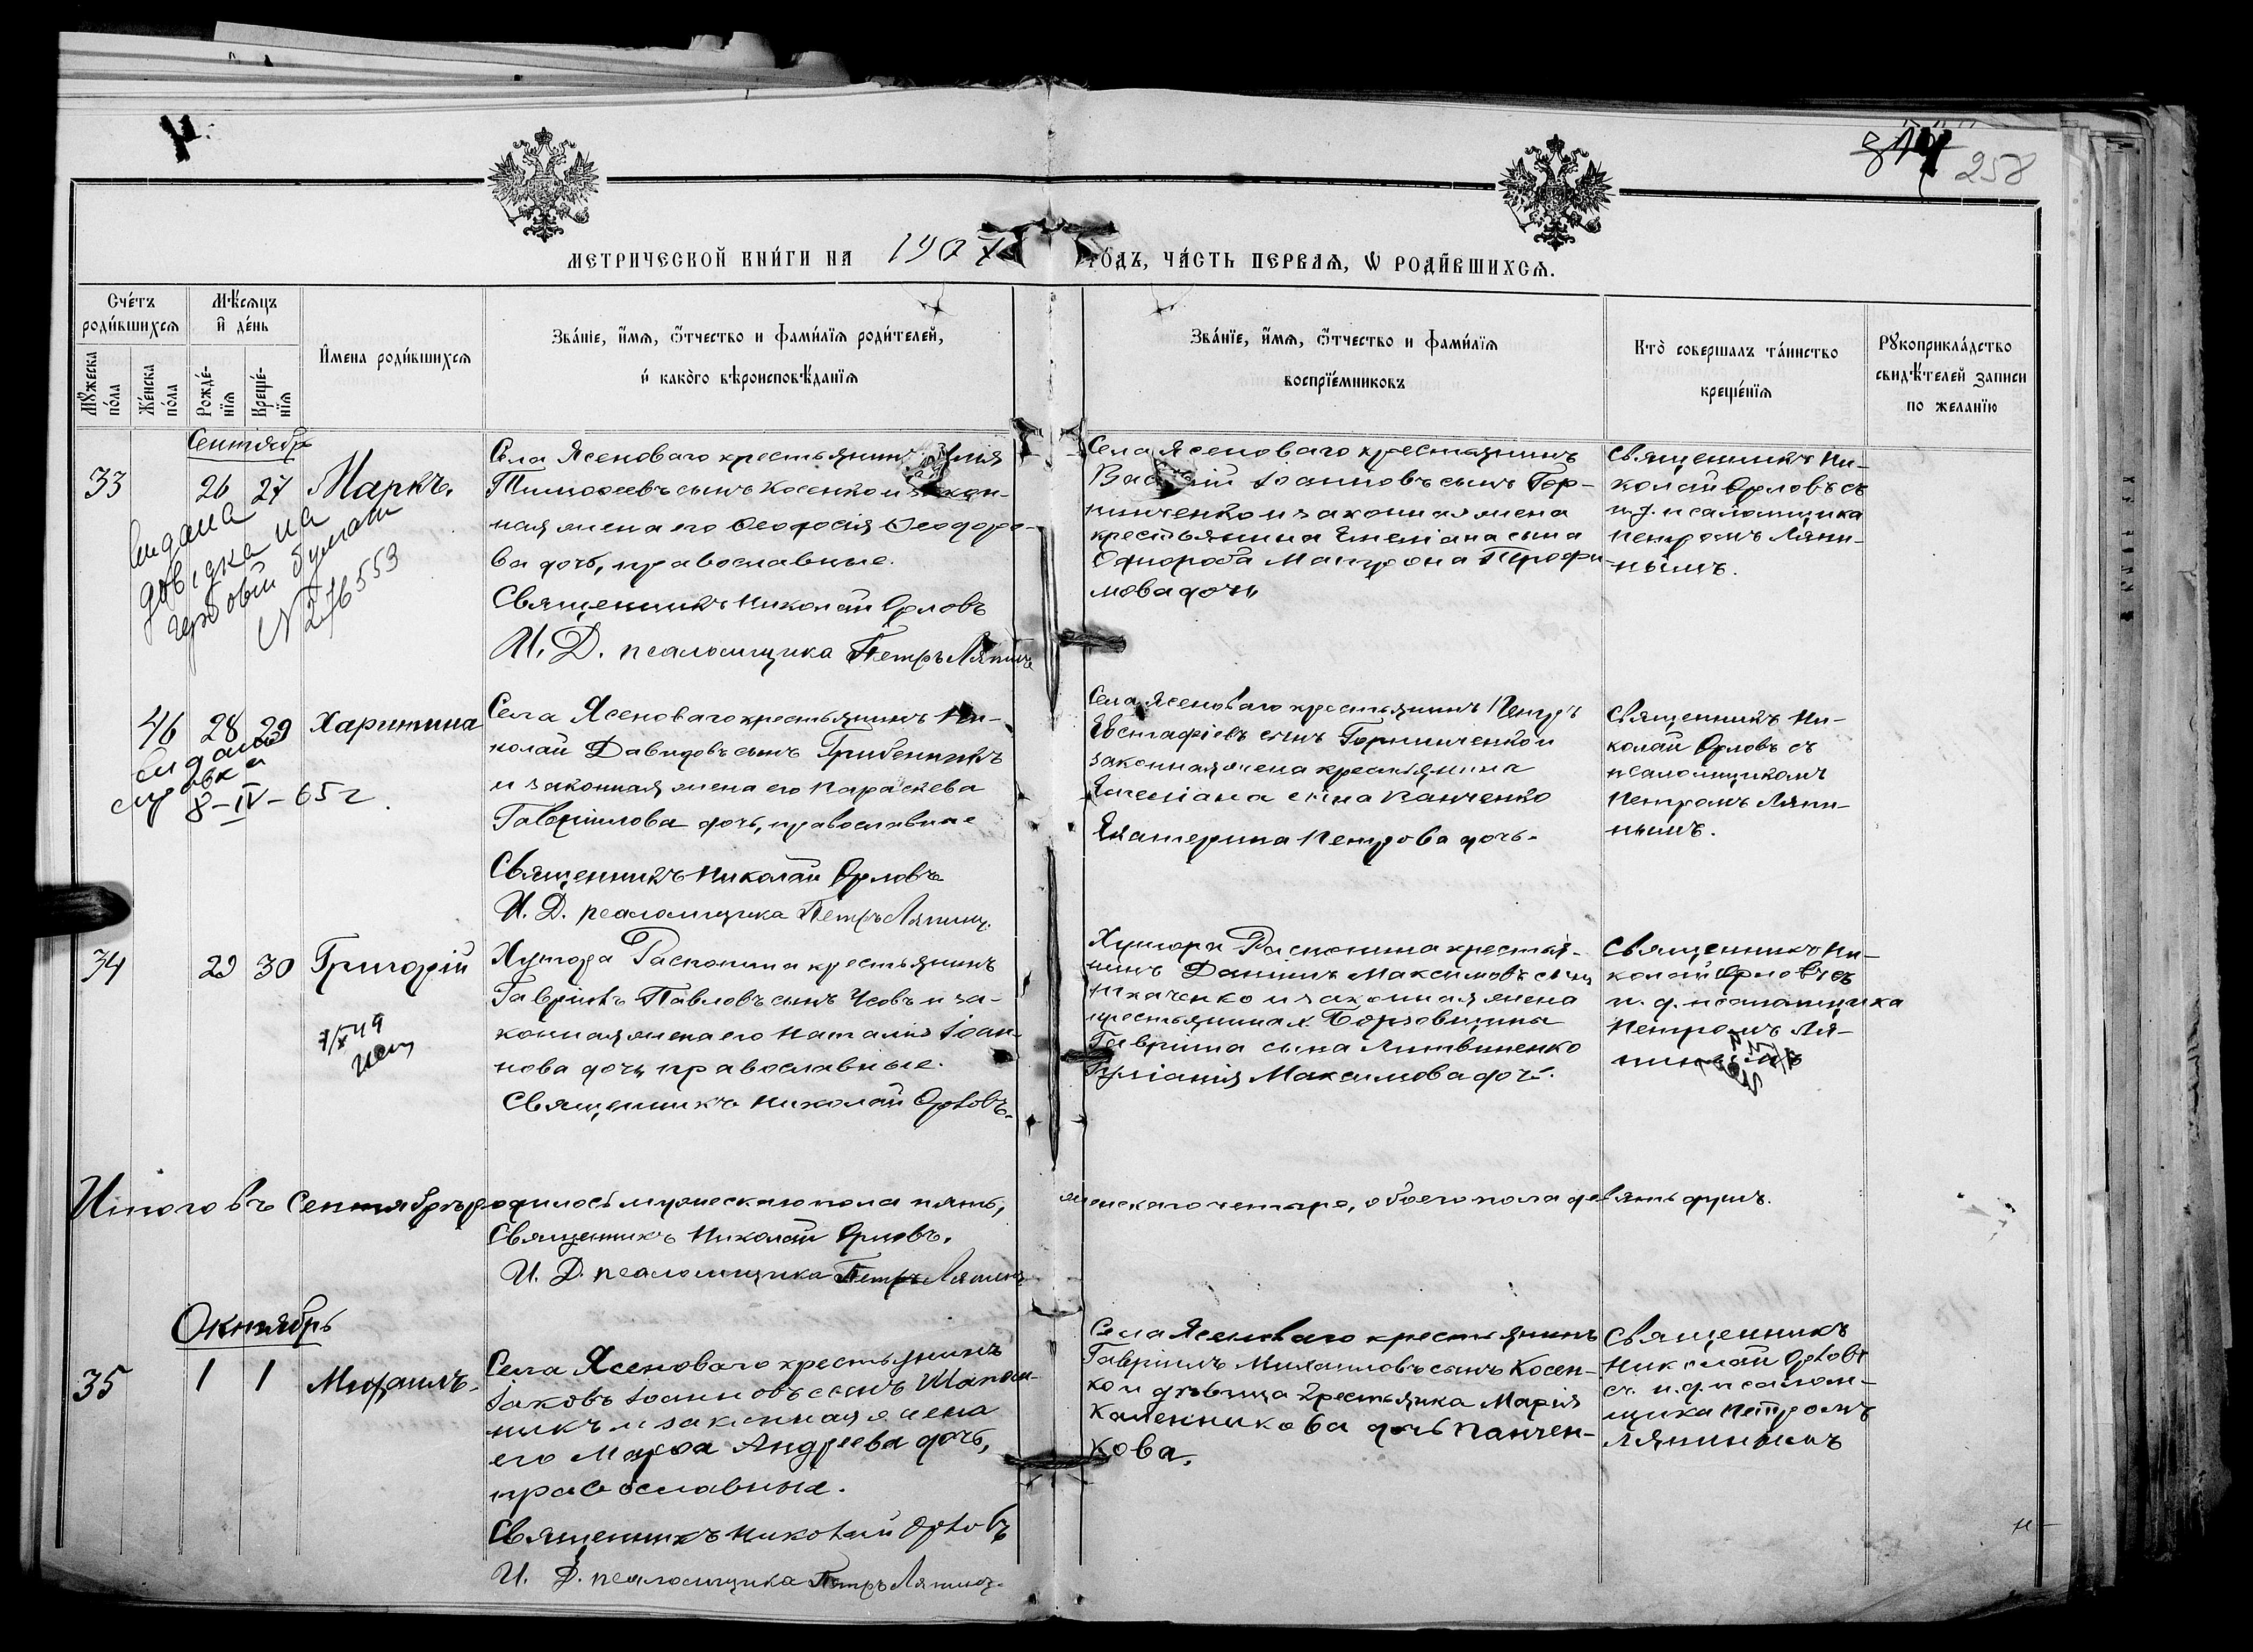 258
МЕТРИЧЕСКОЙ КНИ́ГИ НА 1907
ГО́ДЪ, ЧА́СТЬ ПЕРВАѦ, Ѡ РОДИ́ВШИХСѦ.
Сче́тъ роди́вшихсѧ
Мѣ́сѧцъ и҆ де́нь
Мꙋ́жеска по́ла
Же́нска по́ла
Рожде́-нїѧ
Креще́-нїѧ
И҆мена роди́вшихсѧ
Зва́нїе, и҆́мѧ, ѻ҆́тчество и фами́лїѧ роди́телей,
и҆ како́го вѣроисповѣ́данїѧ
Зва́нїе, и҆́мѧ, ѻ҆́тчество и фами́лїѧ
воспрїе́мниковъ
Кто̀ совершалъ та́инство
креще́нїѧ
Рꙋкоприкла́дство
свидѣ́телей записи
по желанїю
Сентябрь
33
26 27
Маркъ.
видана
довідка на
гербовій бумаги
N 276553
Села Ясеноваго крестьянинъ
Тимоѳеевъ сынъ Косенко и закон-
ная жена его Ѳеодосія Ѳеодоро-
ва дочь, православные.
Священникъ Николай Орловъ
И. Д. псаломщика Петръ Ляпинъ
Села Ясеноваго крестьянинъ
Василій Іоанновъ сынъ Гор-
пинченко и законная жена
крестьянина Емеліана сына
Однороба Матрона Трофи-
мова дочь
Священникъ Ни-
колай Орловъ съ
и. д. псаломщика
Петромъ Ляпи-
нымъ.
46
28 29
Харитина
видана
справка
8-IV-65 г.
Села Ясеноваго крестьянинъ Ни-
колай Давидовъ сынъ Грибенникъ
и законная жена его Параскева
Гавріилова дочь, православные
Священникъ Николай Орловъ
И. Д. псаломщика Петръ Ляпинъ.
Села Ясеноваго крестьянинъ Петръ
Евстафіевъ сынъ Горпинченко и
законная жена крестьянина
Емеліана сына Панченко
Екатерина Петрова дочь.
Священникъ Ни-
колай Орловъ съ
псаломщикомъ
Петромъ Ляпи-
нымъ.
34
29 30
Григорій
Хутора Распопина крестьянинъ
Гавріилъ Павловъ сынъ Чсовъ и за-
конная жена его Наталія Іоан-
нова дочь православные.
Священникъ Николай Орловъ.
Хутора Распопина крестья-
нинъ Даніилъ Максимовъ сынъ
Ткаченко и законная жена
крестьянина х.
Гавріила сына Литвиненко
Іуліанія Максимова дочь.
Священникъ Ни-
колай Орловъ съ
и. д. псаломщика
Петромъ Ля-
Итого въ Сентябрѣ родилось мужескаго пола пять,
женскаго четыре, обоего пола девять душъ.
Священникъ Николай Орловъ.
И. Д. псаломщика Петръ Ляпинъ
Октябрь
35
1 1
Михаилъ.
Села Ясеноваго крестьянинъ
Іаковъ Іоанновъ сынъ Шапош-
никъ и законная жена
его Марѳа Андреева дочь,
православные.
Священникъ Николай Орловъ
И. Д. псаломщика Петръ Ляпинъ.
Села Ясеноваго крестьянинъ
Гавріилъ Михаиловъ сынъ Косен-
ко и дѣвица крестьянка Марія
Каленникова дочь Панчен-
кова.
Священникъ
Николай Орловъ
съ и. д. псалом-
щика Петромъ
Ляпинымъ